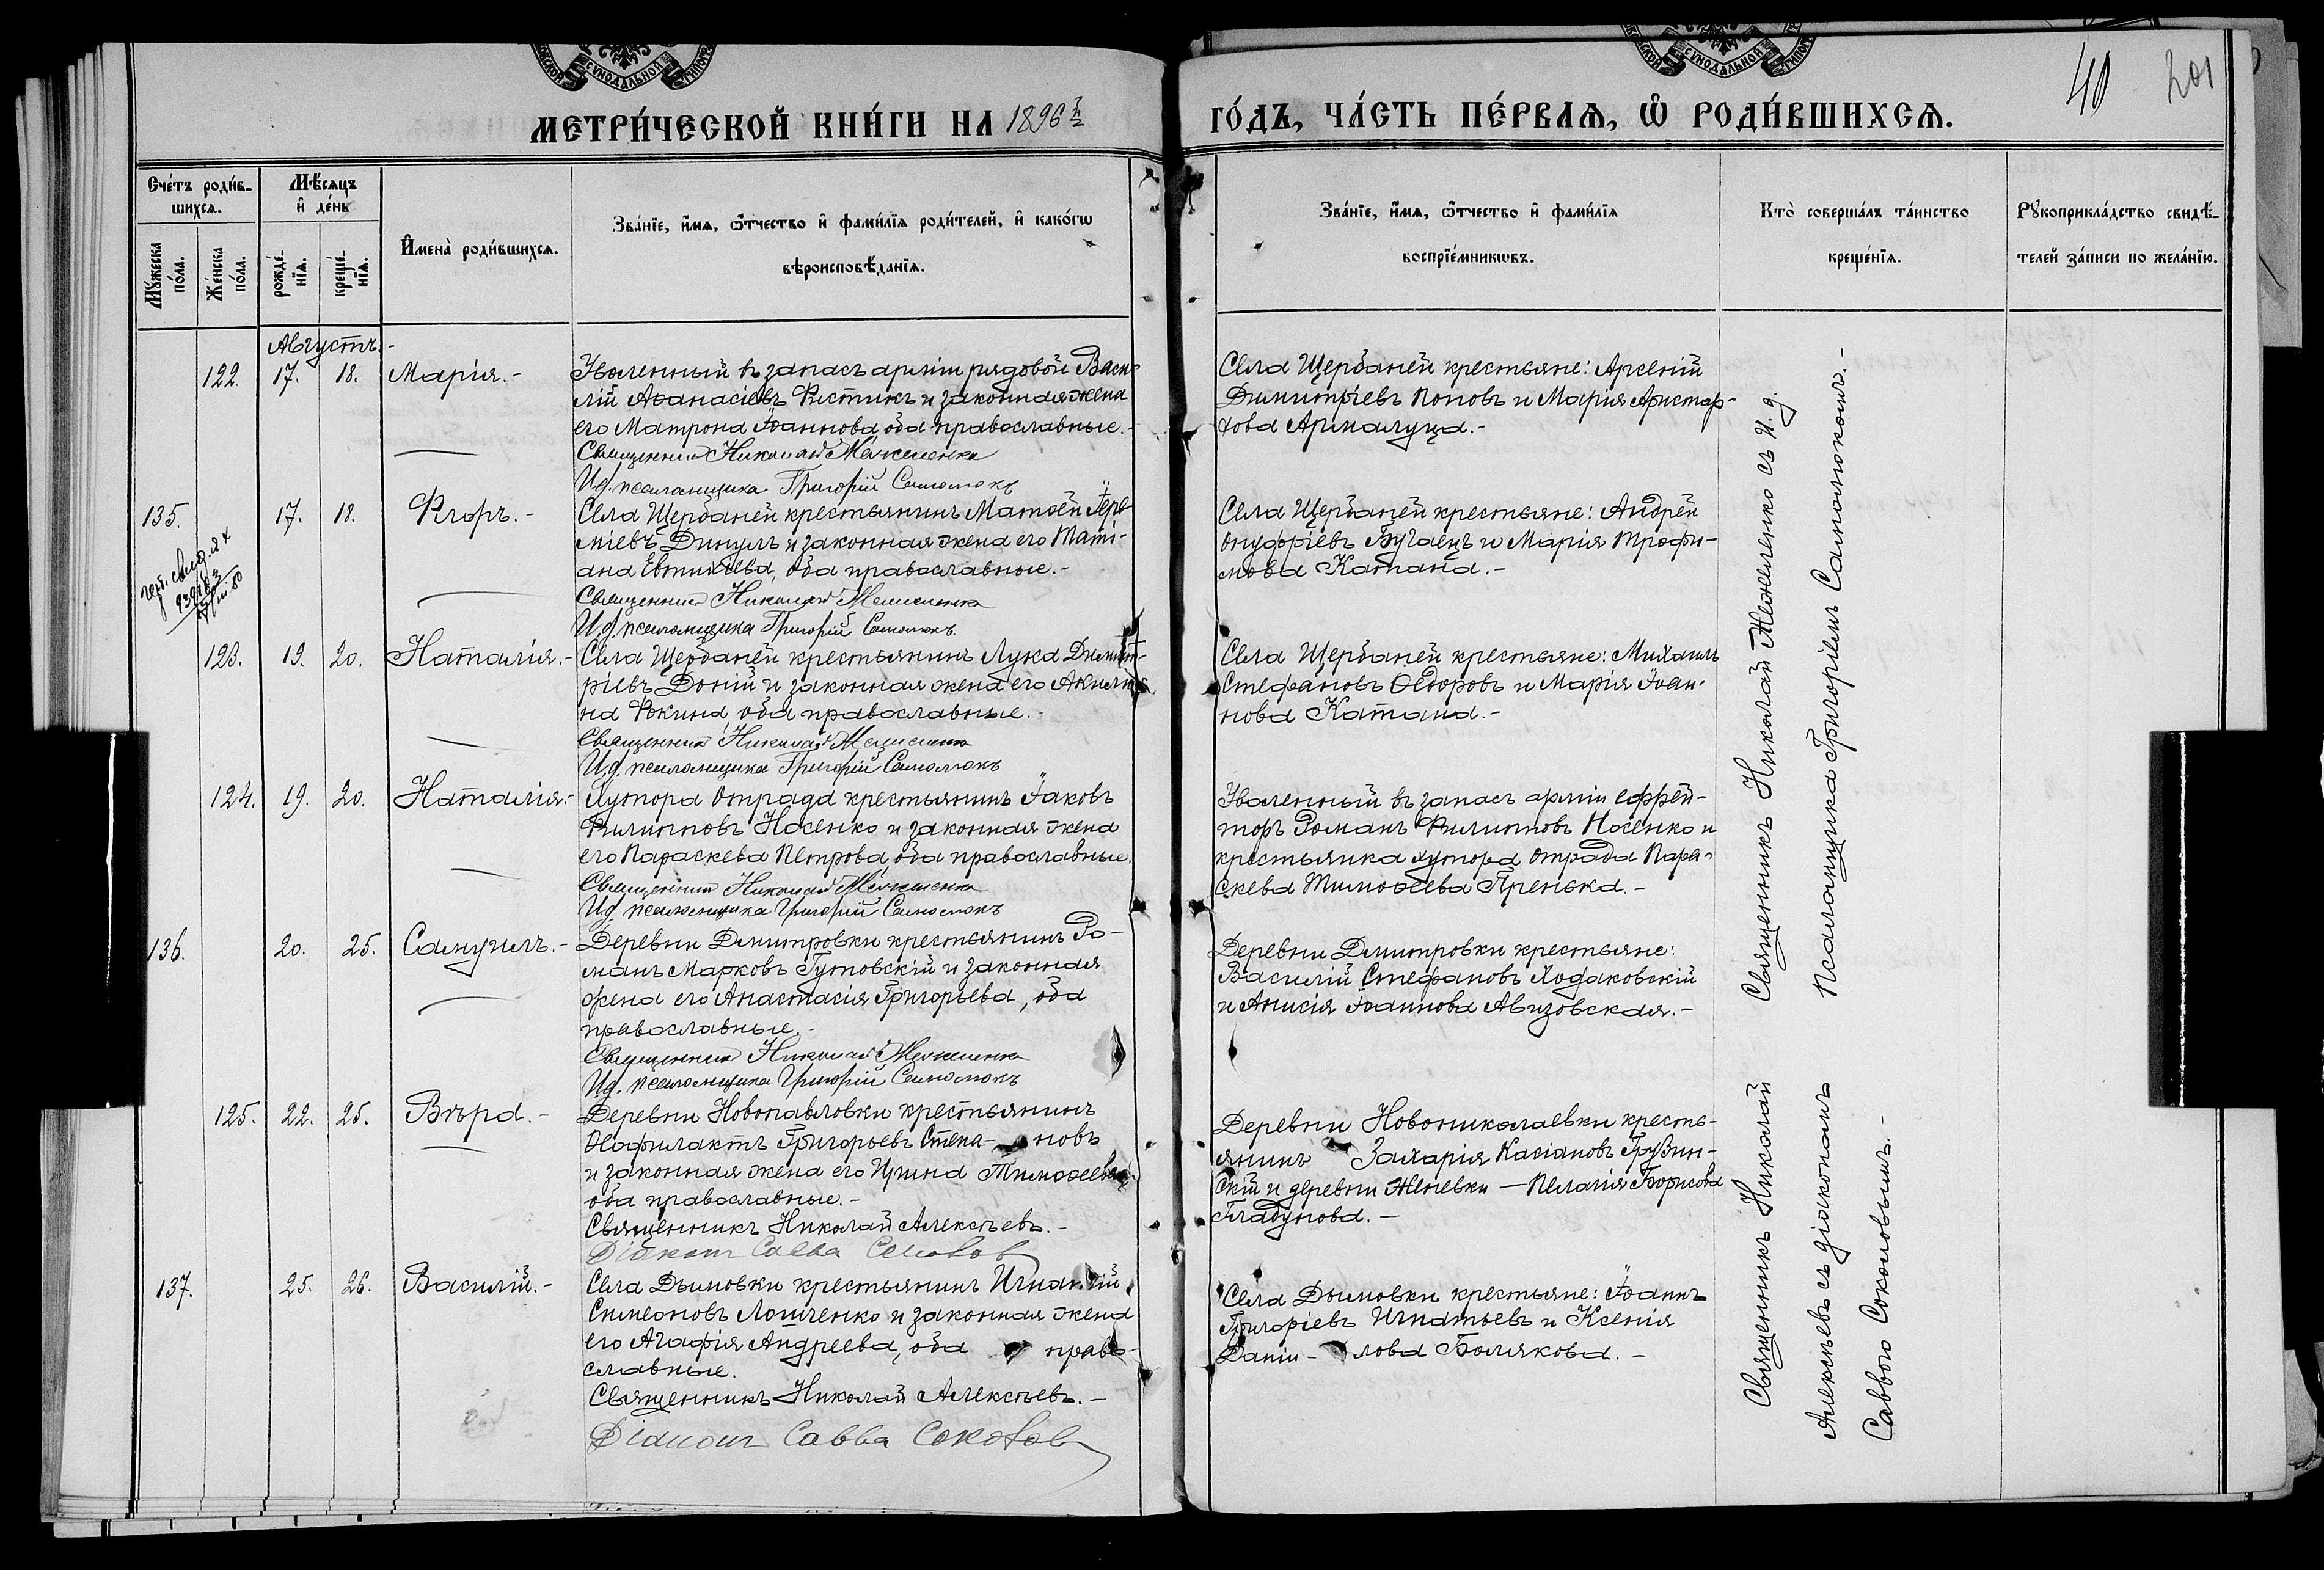 СѴНОДАЛЬНОЙ
СѴНОДАЛЬНОЙ
40 201
МЕТРИ́ЧЕСКОЙ КНИ́ГИ НА 1896й
ГО́ДЪ, ЧА́СТЬ ПЕ́РВАѦ, Ѡ҆ РОДИ́ВШИХСѦ.
Сче́тъ роди́в-
шихсѧ.
Мꙋ́жеска по́ла.
Же́нска по́ла.
Мѣ́сѧцъ
и҆ де́нь
рожде́-
нїѧ.
креще́-
нїѧ.
И҆мена̀ роди́вшихсѧ.
Зва́нїе, и҆́мѧ, ѻ҆́тчество и҆ фами́лїѧ роди́телей, и҆ како́гѡ
вѣроисповѣ́данїѧ.
Зва́нїе, и҆́мѧ, ѻ҆́тчество и҆ фами́лїѧ
воспрїе́мникѡвъ.
Кто̀ соверша́лъ та́инство
креще́нїѧ.
Рꙋкоприкла́дство свидѣ́-
телей за́писи по жела́нїю.
Августъ.-
122. 17. 18. Марія.-
Уволенный въ запасъ арміи рядовой Васи-
лій Аѳанасіевъ Фистикъ и законная жена
его Матрона Іоаннова, оба православные.-
Священникъ Николай Меженко
И.д. псаломщика Григорій Самолюкъ
Села Щербаней крестьяне: Арсеній
Димитріевъ Поповъ и Марія Аристар-
хова Армалуца.-
135. 17. 18. Флоръ.-
Села Щербаней крестьянинъ Матѳей Іере-
міевъ Динулъ и законная жена его Тати-
ана Евтихіева, оба православные.-
Священникъ Николай
И.д. псаломщика Григорій Самолюкъ
Села Щербаней крестьяне: Андрей
Онуфріевъ Бугаецъ и Марія Трофи-
мова Катана.-
123. 19. 20. Наталія.-
Села Щербаней крестьянинъ Лука Димит-
ріевъ Доній и законная жена его Акили-
на Фокина, оба православные.-
Священникъ Николай
И.д. псаломщика Григорій Самолюкъ
Села Щербаней крестьяне: Михаилъ
Стефановъ Ѳедоровъ и Марія Іоан-
нова Катана.-
124. 19. 20. Наталія.-
Хутора Отрада крестьянинъ Іаковъ
Филипповъ Носенко и законная жена
его Параскева Петрова, оба православные.
Священникъ Николай
И.д. псаломщика Григорій Самолюкъ
Уволенный въ запасъ арміи ефрей-
торъ Романъ Филипповъ Носенко и
крестьянка хутора Отрада Пара-
скева Тимоѳеева Пренька.-
136. 20. 25. Самуилъ.-
Деревни Дмитровки крестьянинъ Ро-
манъ Марковъ Гутовскій и законная
жена его Анастасія Григорьева, оба
православные.-
Священникъ Николай
И.д. псаломщика Григорій Самолюкъ
Деревни Дмитровки крестьяне:
Василій Стефановъ Ходаковскій
и Анисія Іоаннова Авизовская.-
125. 22. 25. Вѣра.-
Деревни Новопавловки крестьянинъ
Ѳеофилактъ Григорьевъ Степа- новъ
и законная жена его Ирина Тимоѳеева,
оба православные.-
Священникъ Николай Алексѣевъ.-
Діаконъ Савва Соколов
Деревни Новониколаевки кресть-
янинъ Захарія Касіановъ Грузин-
скій и деревни Женевки — Пелагія Борисова
Гладунова.-
137. 25. 26. Василій.-
Села Дымовки крестьянинъ Игнатій
Симеоновъ Лопченко и законная жена
его Агафія Андреева, оба право-
славные.
Священникъ Николай Алексѣевъ.-
Діаконъ Савва Соколов
Села Дымовки крестьяне: Іоаннъ
Григоріевъ Игнатьевъ и Ксенія
Даніи- лова Болякова.-
Священникъ Николай Меженко съ И.д.
Псаломщика Григоріемъ Самолюкомъ.-
Священникъ Николай
Алексѣевъ съ діакономъ
Саввою Соколовымъ.-